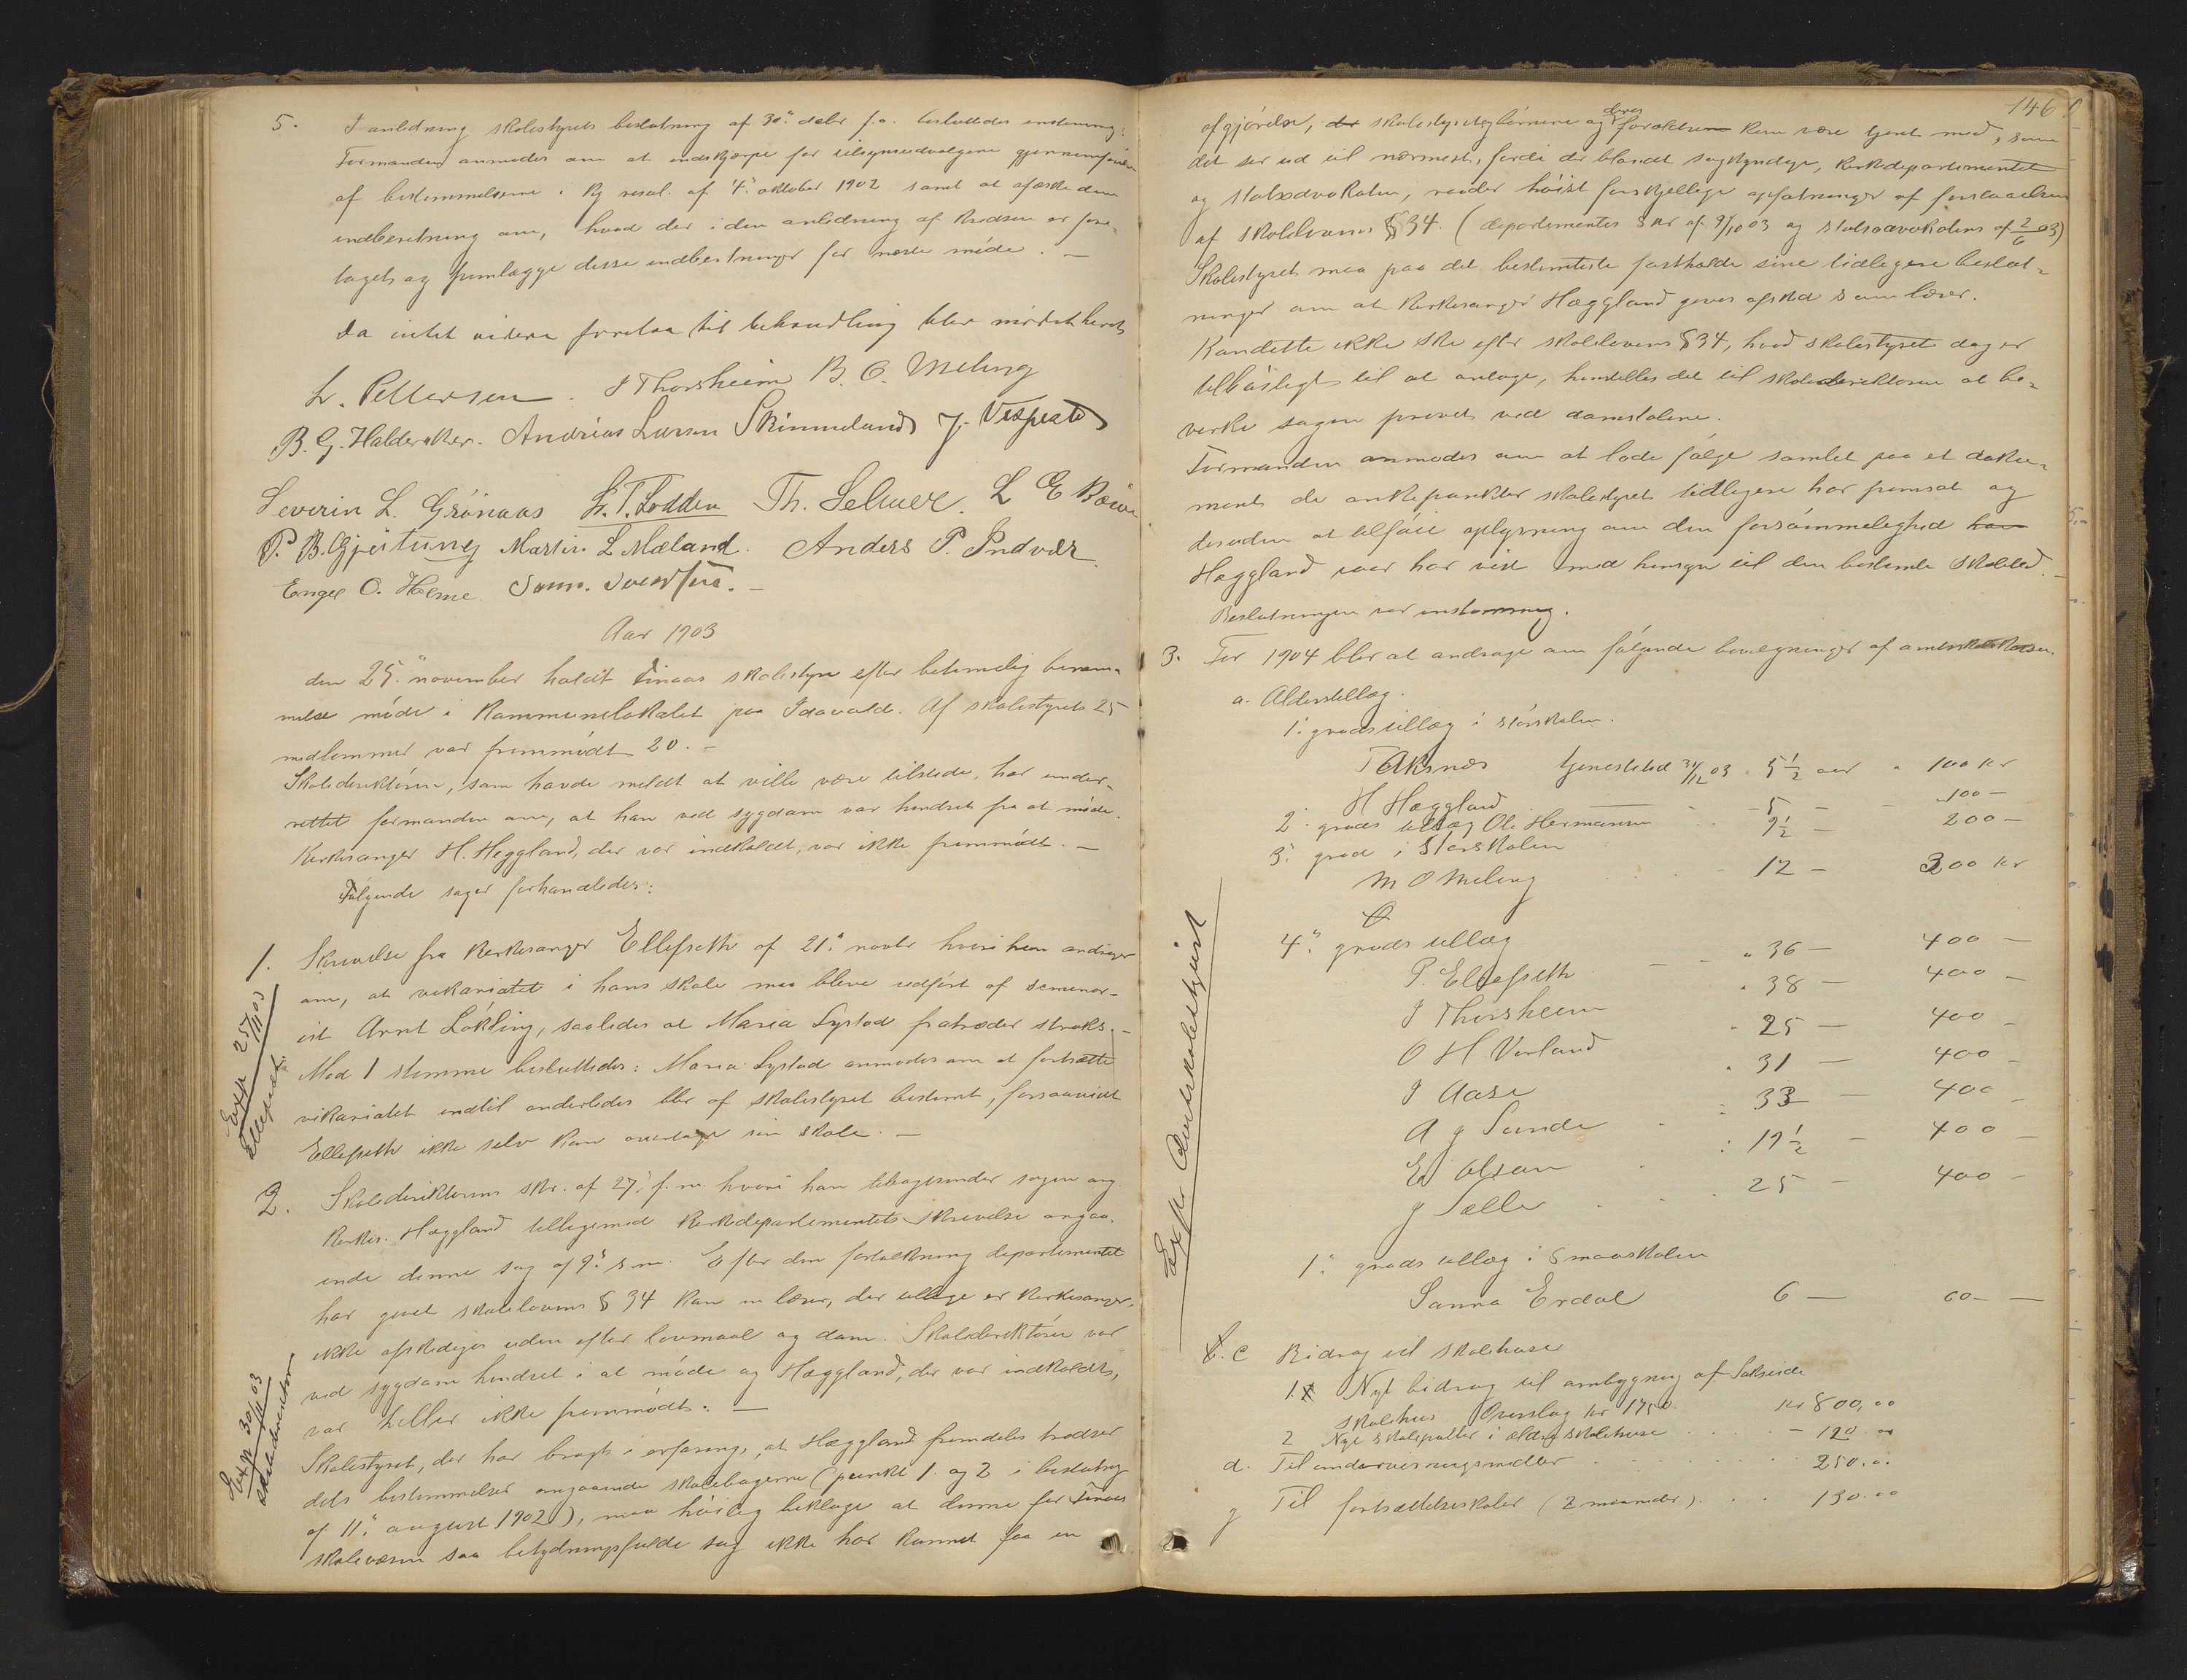 5. I anledning skolestyrets beslutning af 30.' debr f.a. besluttedes enstemmig:
Formanden anmodes om at indskjærpe for tilsynsudvalgene gjennemførelsen
af bestemmelserne i kg resol. af 4.' oktober 1902 samt at afæske dem
indberetning om, hvad der i den anledning af kredsen er fore-
taget og fremlægge disse indberetninger for næste møde. —
Da intet videre forelaa til behandling blev mødet hævet
L. Pettersen. J Thorsheim B. O. Meling
B. G. Halderaker. Andreas Larsen Skimmeland J. Vespestad
Severin L. Grønaas L. T. Lodden Th. Selmer. L E Bøwe
P. B. Gjeitung Martin L Mæland. Anders P. Indvær
Engel O. Holme
Aar 1903
den 25.' november holdt Finaas skolestyre efter betimelig beram-
melse møde i Kommunelokalet paa Idavold. Af skolestyrets 25
medlemmer var fremmødt 20. —
Skoledirektøren, som havde meldt at ville være tilstede, har under-
rettet formanden om, at han ved sygdom var hindret fra at møde.
Kirkesanger H. Heggland, der var indkaldt, var ikke fremmødt. —
Følgende sager forhandledes:
1. Skrivelse fra kirkesanger Ellefseth af 21.' novbr hvori han andrager
om, at vikariatet i hans skole maa blive udført af seminar-
ist Arnt Løkling, saaledes at Maria Systad fratræder straks. —
Mod 1 stemme besluttedes: Maria Systad anmodes om at fortsætte
vikariatet indtil anderledes blir af skolestyret bestemt, forsaavidt
Ellefseth ikke selv kan overtage sin skole. —
Exp 25/11 03
Ellefseth
2. Skoledirektørens skr. af 27.' f.m. hvori han tilbagesender sagen ang
kirkes. Hæggland tilligemed kirkedepartementets skrivelse angaa-
ende denne sag af 9.' s.m. Efter den fortolkning departementet
har givet skolelovens § 34 kan en lærer, der tillige er kirkesanger,
ikke afskediges uden efter lovmaal og dom. Skoledirektøren var
ved sygdom hindret i at møde og Hæggland, der var indkaldt,
var heller ikke fremmødt. —
Exp 30/11 03
skoledirektøren
Skolestyret, der har bragt i erfaring, at Hæggland fremdeles trodser
dets bestemmelser angaaende skolebøgerne (punkt 1 og 2 i beslutng
af 11.' august 1902), maa høilig beklage at denne for Finaas
skolevæsen saa betydningsfulde sag ikke har kunnet faa en
146
afgjørelse, der skolestyret, børnene og deres forældre kan være tjent med, som
det ser ud til nærmest, fordi der blandt sagkyndige, kirkedepartementet
og statsadvokaten, raader høist forskjellige opfatninger af forstaaelsen
af skolelovens § 34. (departementets skr af 9/10 03 og statsadvokatens af 2/6 03)
Skolestyret maa paa det bestemteste fastholde sine tidligere beslut-
ninger om at kirkesanger Hæggland gives afsked som lærer.
Kan dette ikke ske efter skolelovens § 34, hvad skolestyret dog er
tilbøieligt til at antage, henstilles det til skoledirektøren at be-
virke sagen prøvet ved domstolene.
Formanden anmodes om at lade følge samlet paa et doku-
ment de ankepunkter skolestyret tidligere har fremsat og
desuden at tilføie oplysning om den forsømmelighed han
Hæggland iaar har vist med hensyn til den bestemte skoletid. —
Beslutningen var enstemmig.
3. For 1904 blir at andrage om følgende bevilgninger af amtsskolekassen.
a. Alderstillæg.
1.' grads tillæg i storskolen.
T Øksnæs tjenestetid 31/12 03 5½ aar 100 kr
H Hæggland 5 — 100 —
2.' grads tillæg Ole Hermansen 9½ — 200 —
3.' grad i Storskolen
M O Meling 12 — 300 kr
4.' grads tillæg
P. Ellefseth 36 — 400 —
J Thorsheim 38 — 400 —
O H Vorland 25 — 400 —
J Aase 31 — 400 —
A g Sunde 33 — 400 —
E Olsen 19½ — 400 —
J Sælle 25 — 400 —
1.' grads tillæg i Smaaskolen
Sanna Erdal 6 — 60 —
Exp Amtsskolestyret
c Bidrag til skolehuse
1. Nyt bidrag til ombygning af Sakseide
skolehus Overslag kr 1750 kr 800,00
2 Nye skolepulter i ældre skolehuse — 120 00
d. Til undervisningsmidler 250.00
g Til fortsættelsesskoler (2 maaneder) 130.00